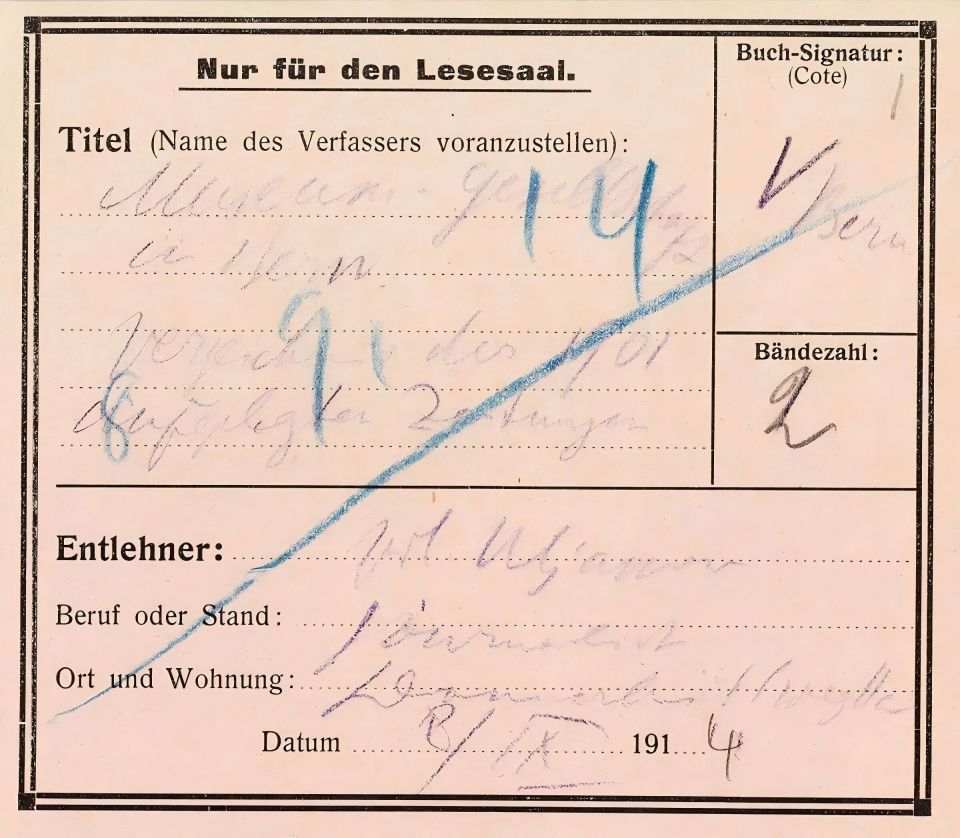 Nur für den Lesesaal.
Buch-Signatur:
(Cote)
1
Titel (Name des Verfassers voranzustellen):
Museums-Gesellschaft
in Bern.
V Bern
14
Verzeichnis der 1901
91
Bändezahl:
2
8
aufgelegten Zeitungen
Entlehner: Wl. Uljanow
Beruf oder Stand: Journalist
Ort und Wohnung:
Datum 8/IX 1914